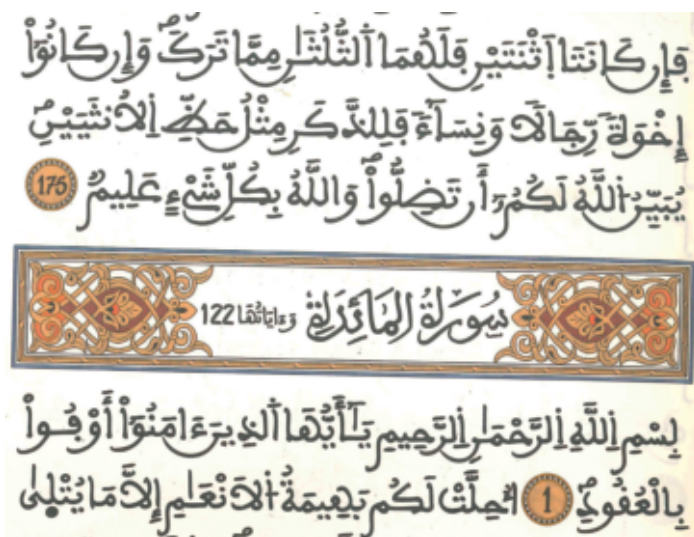 فَإِن كَانَتَا اَثْنَتَيْنِ فَلَهُمَا اَلثُّلُثَٰنِ مِمَّا تَرَكَۖ وَإِن كَانُوٓاْ
إِخْوَةٗ رِّجَالٗا وَنِسَآءٗ فَلِلذَّكَرِ مِثْلُ حَظِّ اِلُانثَيَيْنِۖ
يُبَيِّنُ اُللَّهُ لَكُمُۥٓ أَن تَضِلُّواْۖ وَاللَّهُ بِكُلِّ شَےْءٍ عَلِيمٌۖ 175
سُورَةُ المَائِدَةِ وَءَايَاتُهَا 122
بِسْمِ اِللَّهِ اِلرَّحْمَٰنِ اِلرَّحِيمِ يَٰٓأَيُّهَا اَلذِينَ ءَامَنُوٓاْ أَوْفُواْ
بِالْعُقُودِۖ 1 اُحِلَّتْ لَكُم بَهِيمَةُ اُلَانْعَٰمِ إِلَّا مَا يُتْلَىٰ